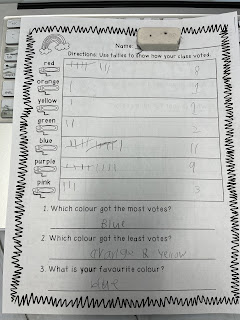 Name:
Directions: Use tallies to show how your class voted.
red 8
orange 1
yellow
green
blue 11
purple 9
pink 3
1. Which colour got the most votes?
Blue
2. Which colour got the least votes?
orange & yellow
3. What is your favourite colour?